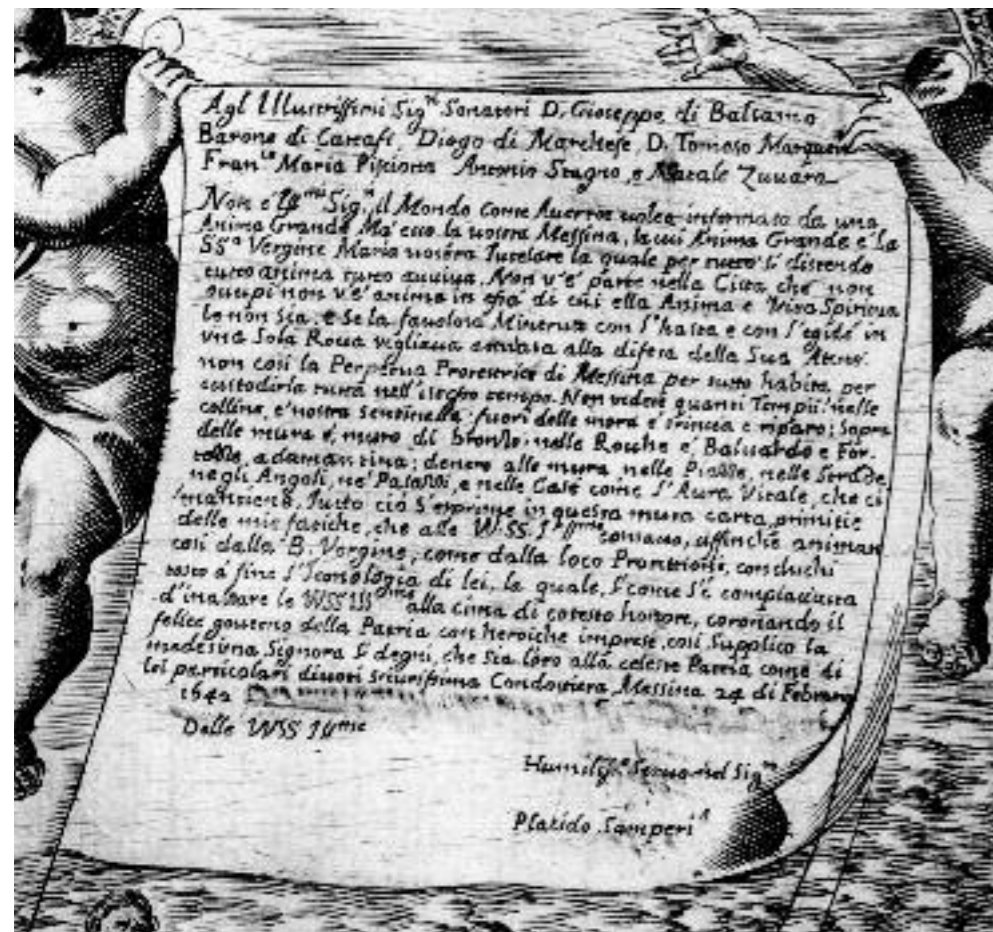 Agl Illustrissimi Sig.ri Senatori D. Gioseppe di Balsamo
Barone di Cattafi, Diogo di Marchese, D. Tomaso Marquett
Fran.co Maria Pisciotta Antonio Stagno, e Natale Zuuaro
Non è Ill.mi Sig.ri il Mondo come Auerroe uolea informato da una
Anima Grande. Mà ecco la uostra Messina, la cui Anima Grande è la
SS.a Vergine Maria nostra Tutelare la quale per tutto si distende
tutto anima tutto auuiua. Non v'è parte nella Città che non
occupi non v'è anima in essa di cui ella Anima e Vita Spiritua
le non sia, e Se la fauolosa Minerua con l'hasta e con l'egide in
vna Sola Rocca vigliaua armata alla difesa della Sua Atene
non così la Perpetua Protettrice di Messina per tutto habita per
custodirla tutta nell'istesso tempo. Non vedete quanti Tempii! nelle
colline, e' nostra sentinella: fuori delle mora è trincea e riparo; Sopra
delle mura è, muro di bronzo: nelle Rocche e' Baluardo e For-
tezza adamantina; dentro alle mura nelle Piazze, nelle Strade,
negli Angoli, ne' Palazzi, e nelle Case come l'Aura Vitale, che ci
mantiene. Tutto ciò s'esprime in questa muta carta, primitie
delle mie fatiche, che alle WSS. Ill.me consacro, affinche animan
così dalla B. Vergine, come dalla loco Protettione, conduchi
tosto à fine l'Iconologia di lei, la quale, Si come s'è compiaciuta
d'inalzare le WSS Ill.me alla cima di cotesto honore, coronando il
felice gouerno della Patria con heroiche imprese, così Supplico la
medesima Signora Si degni, che Sia loro alla celeste Patria come di
lei particolari diuoti sicurissima Condottiera Messina 24 di Febraro
1642
Delle WSS Ill.me
Humiliss.o Seruo nel Sig.re
Placido Samperi